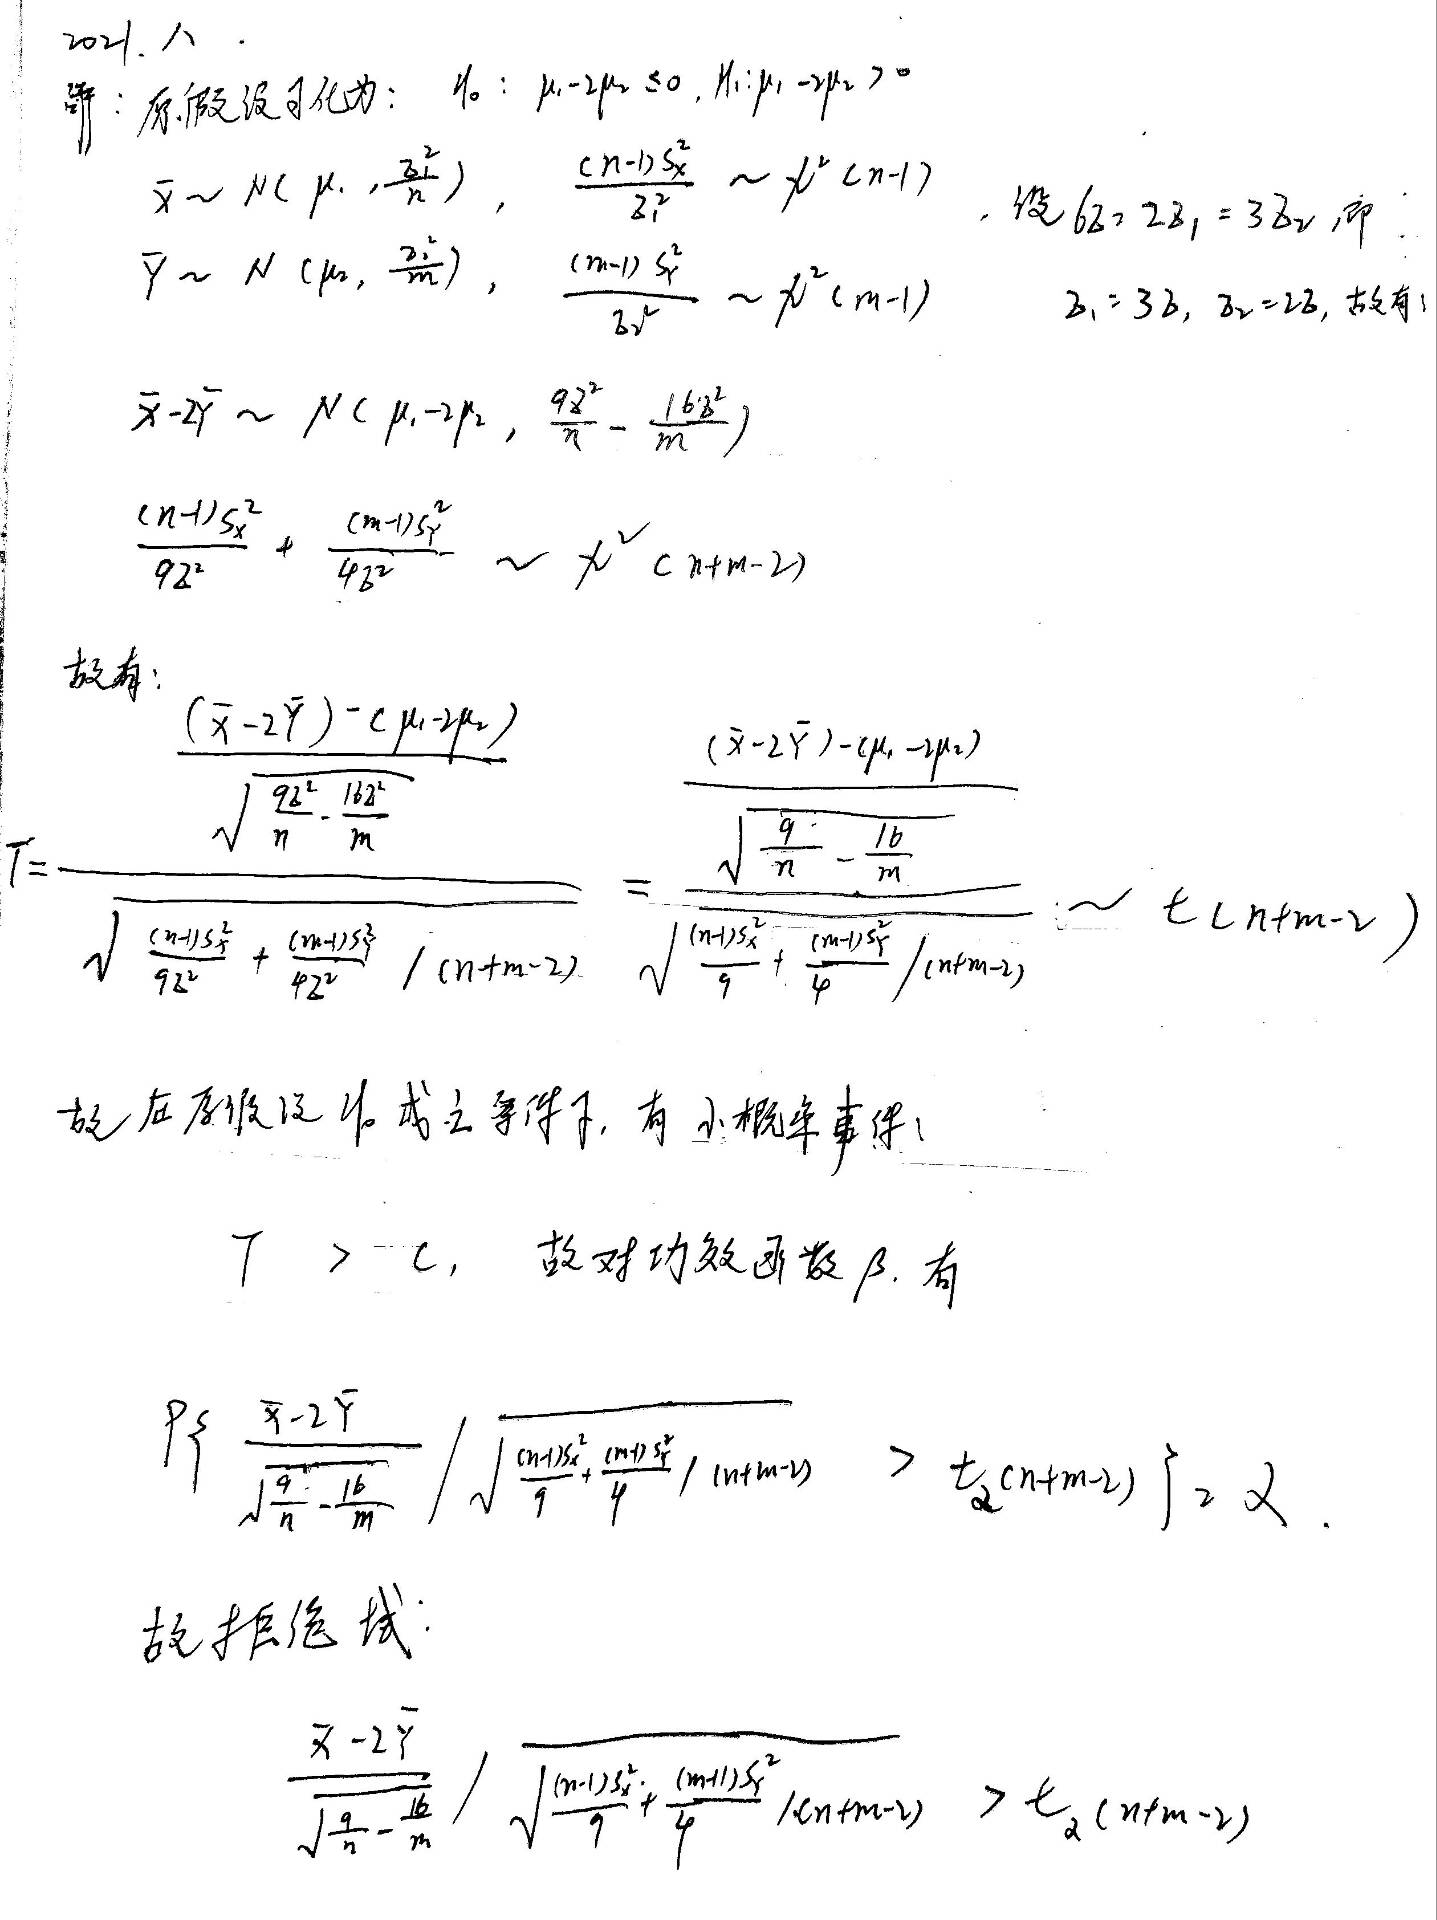 2021. 八.
解：原假设可化为： H₀： μ₁-2μ₂ ≤ 0, H₁: μ₁-2μ₂ > 0
X̄ ~ N( μ₁, σ₁²/n ), (n-1)S_X²/σ₁² ~ χ²(n-1)
Ȳ ~ N(μ₂, σ₂²/m), (m-1)S_Y²/σ₂² ~ χ²(m-1)
, 设 6σ = 2σ₁ = 3σ₂, 即：
σ₁ = 3σ, σ₂ = 2σ, 故有：
X̄-2Ȳ ~ N( μ₁-2μ₂, 9σ²/n - 16σ²/m )
(n-1)S_X²/9σ² + (m-1)S_Y²/4σ² ~ χ²(n+m-2)
故有：
T = [((X̄-2Ȳ)-(μ₁-2μ₂)) / √(9σ²/n - 16σ²/m)] / √((n-1)S_X²/9σ² + (m-1)S_Y²/4σ² / (n+m-2)) = [((X̄-2Ȳ)-(μ₁-2μ₂)) / √(9/n - 16/m)] / √((n-1)S_X²/9 + (m-1)S_Y²/4 / (n+m-2)) ~ t(n+m-2)
故在原假设 H₀ 成立条件下, 有小概率事件：
T > C, 故对功效函数 β, 有
P{ (X̄-2Ȳ)/√(9/n - 16/m) / √((n-1)S_X²/9 + (m-1)S_Y²/4 / (n+m-2)) > t_α(n+m-2) } = α.
故拒绝域：
(X̄-2Ȳ)/√(9/n - 16/m) / √((n-1)S_X²/9 + (m-1)S_Y²/4 / (n+m-2)) > t_α(n+m-2)